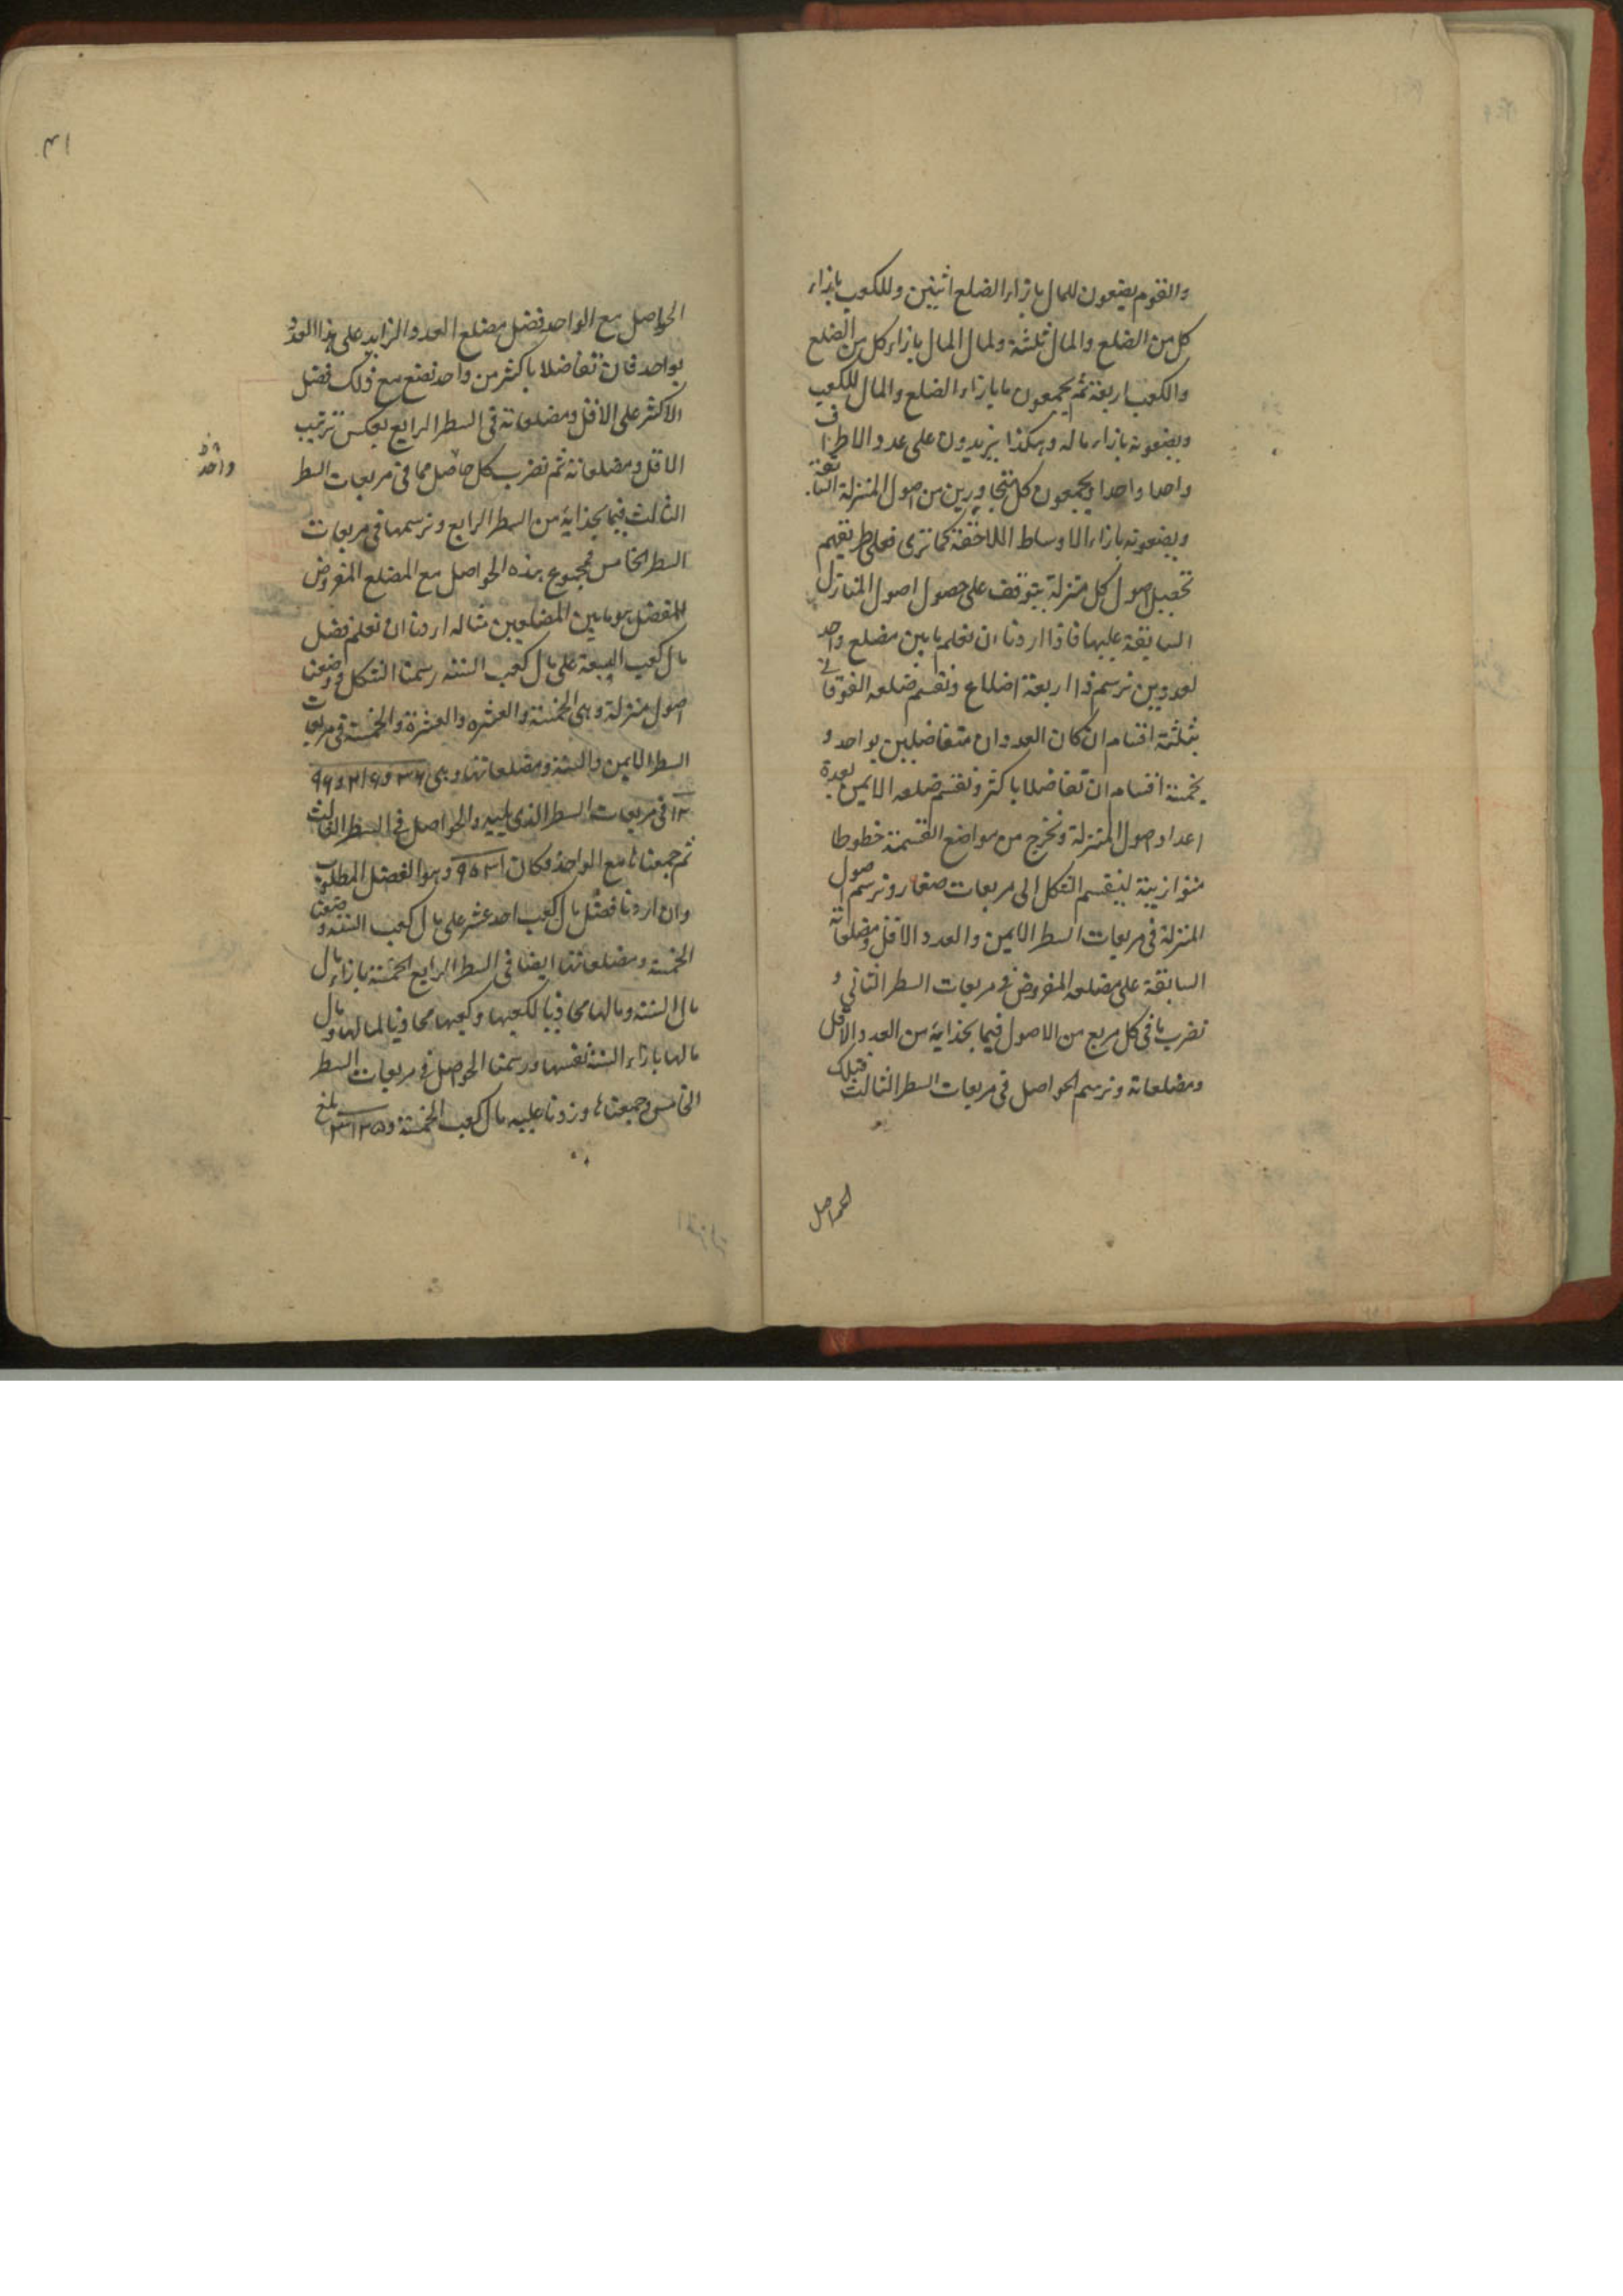 والقوم يضعون للمال بازاء الضلع اثنين وللكعب بازاء
كل من الضلع والمال ثلثة ولمال المال بازاء كل من الضلع
والكعب اربعة ثم يجمعون ما بازاء الضلع والمال للكعب
ويضعونه بازاء ماله وهكذا يزيدون على عدد الاطراف
واحدا واحدا ويجمعون كل متجاورين من اصول المنزلة السابقة
ويضعونه بازاء الاوساط اللاحقة كما ترى فعلى طريقهم
تحصيل اصول كل منزلة يتوقف على حصول اصول المنازل
السابقة عليها فاذا اردنا ان نعلم ما بين مضلع واحد
لعددين نرسم ذا اربعة اضلاع ونقسم ضلعه الفوقاني
بثلثة اقسام ان كان العددان متفاضلين بواحد و
بخمسة اقسام ان تفاضلا باكثر ونقسم ضلعه الايمن بعدة
اعداد اصول المنزلة ونخرج من مواضع القسمة خطوطا
متوازية لينقسم الشكل الى مربعات صغار ونرسم اصول
المنزلة فى مربعات السطر الايمن والعدد الاقل ومضلعاته
السابقة على مضلعه المفروض فى مربعات السطر الثانى و
نضرب ما فى كل مربع من الاصول فيما بحذايه من العدد الاقل
ومضلعاته ونرسم الحواصل فى مربعات السطر الثالث فتلك
الحواصل
٣١
الحواصل مع الواحد فضل مضلع العدد الزايد على هذا العدد
بواحد فان تفاضلا باكثر من واحد نضع مع ذلك فضل
الاكثر على الاقل ومضلعاته فى السطر الرابع بعكس ترتيب
الاقل ومضلعاته ثم نضرب كل حاصل مما فى مربعات السطر
الثالث فيما بحذايه من السطر الرابع ونرسمها فى مربعات
السطر الخامس فمجموع هذه الحواصل مع المضلع المفروض
للفضل هو ما بين المضلعين مثاله اردنا ان نعلم فضل
مال كعب السبعة على مال كعب الستة رسمنا الشكل ووضعنا
اصول منزلة وهى الخمسة والعشرة والعشرة والخمسة فى مربعات
السطر الايمن والستة ومضلعاتها وهى ٣٦ و٢١٦ و١٢٩٦
فى مربعات السطر الذى يليه والحواصل فى السطر الثالث
ثم جمعناها مع الواحد فكان ٩٠٣١ وهو الفضل المطلوب
وان اردنا فضل مال كعب احد عشر على مال كعب الستة وضعنا
الخمسة ومضلعاتها ايضا فى السطر الرابع الخمسة بازاء مال
مال الستة ومالها محاذيا لكعبها وكعبها محاذيا لمالها ومال
مالها بازاء الستة نفسها ورسمنا الحواصل فى مربعات السطر
الخامس وجمعناها وزدنا عليه مال كعب الخمسة و٣١٢٥ بلغ